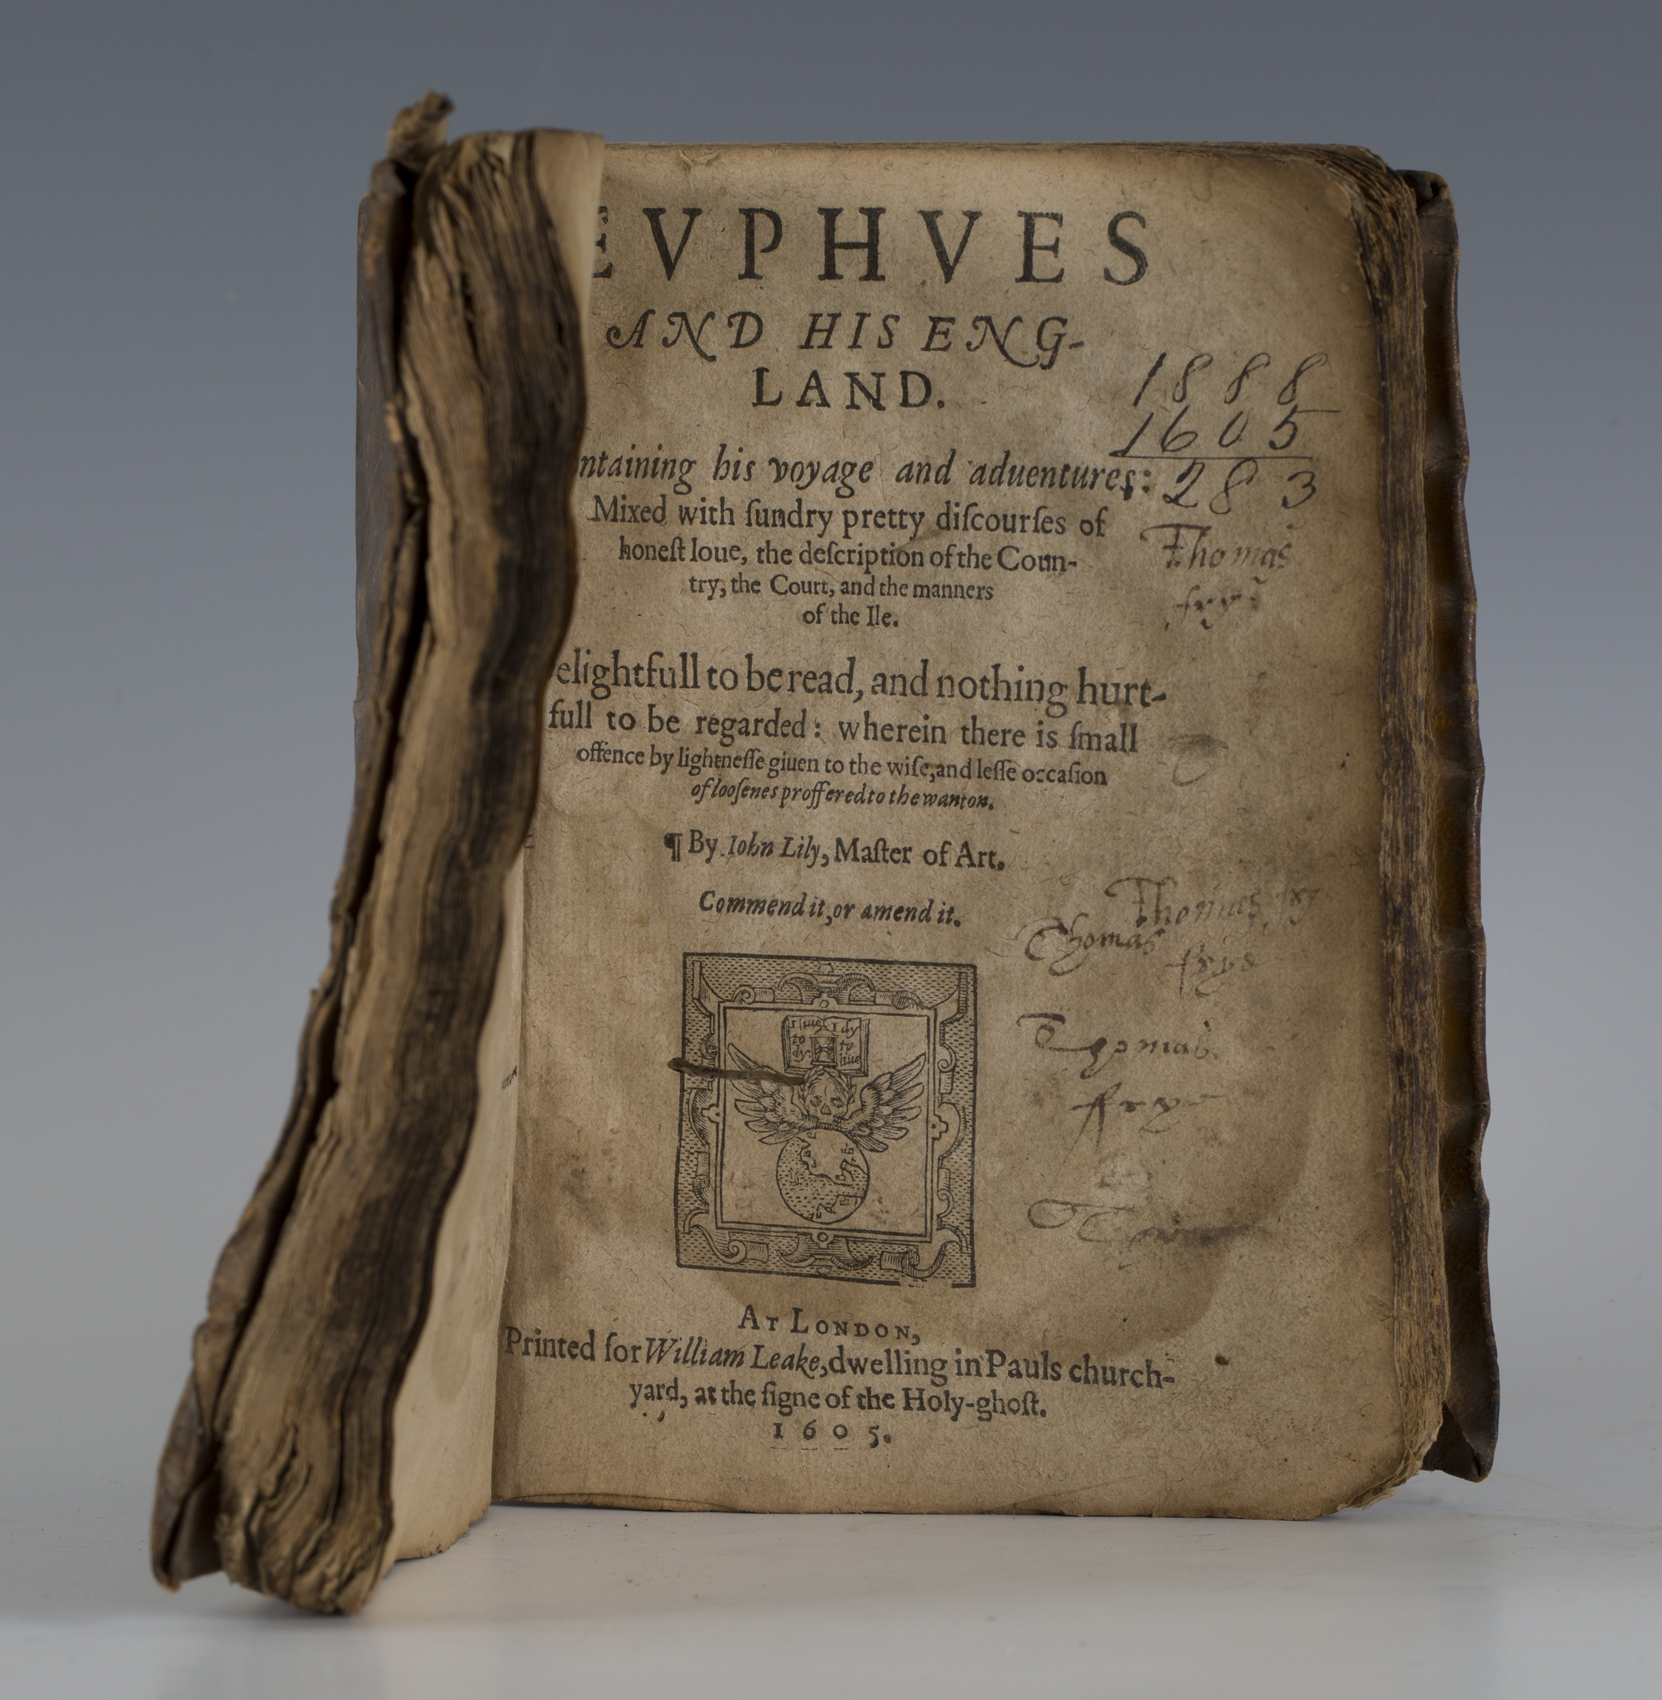 EVPHVES
AND HIS ENG-
LAND.
1888
1605
283
ntaining his voyage and aduentures:
Mixed with ſundry pretty diſcourſes of
honeſt loue, the deſcription of the Coun-
try, the Court, and the manners
of the Ile.
Thomas
elightfull to be read, and nothing hurt-
full to be regarded: wherein there is ſmall
offence by lightneſſe giuen to the wiſe, and leſſe occaſion
of looſenes proffered to the wanton.
¶ By Iohn Lily, Maſter of Art.
Commend it, or amend it.
Thomas
Thomas
frye
Thomas
frye
AT LONDON,
Printed for William Leake, dwelling in Pauls church-
yard, at the ſigne of the Holy-ghoſt.
1605.